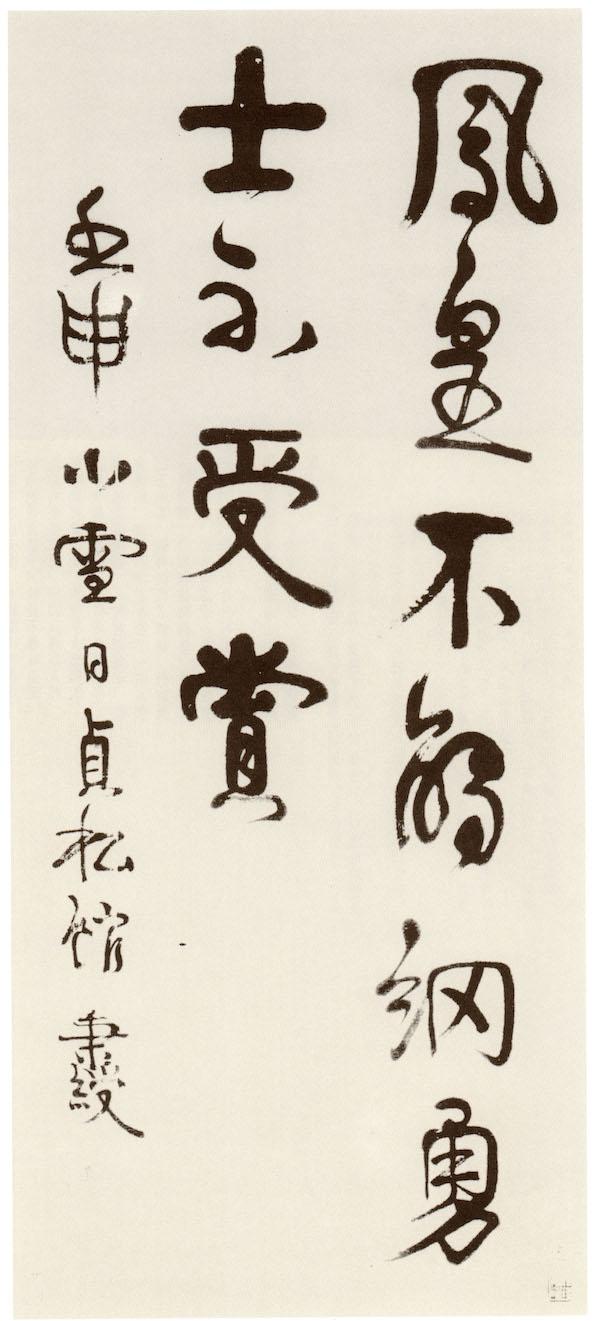 鳳皇不觸網勇
士不受賞
壬申小雪日貞松館秉綬